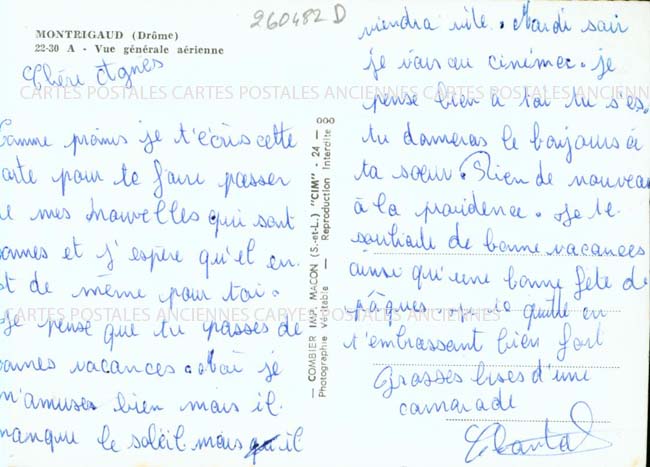 MONTRIGAUD (Drôme)
22-30 A - Vue générale aérienne
260482 D
Chère Agnes
omme promis je t'écris cette
arte pour te faire passer
e mes nouvelles qui sont
onnes et j'espère qu'il en
st de même pour toi.
Je pense que tu passes de
onnes vacances. Moi je
m'amuse bien mais il
manque le soleil mais il
viendra vite. Mardi soir
je vais au cinéma. je
pense bien à toi tu s'es.
tu donneras le bonjour à
ta sœur. Rien de nouveau
à la providence. Je te
souhaite de bonne vacances
ainsi qu'une bonne fête de
pâques je quitte en
t'embrassant bien fort
Grosses bises d'une
camarade
Chantal
COMBIER IMP. MACON (S.-et-L.) "CIM" - 24 - 000
Photographie Véritable - Reproduction Interdite
CARTES POSTALES ANCIENNES CARTES POSTALES ANCIENNES CARTES POSTALES ANCIENNES
CARTES POSTALES ANCIENNES CARTES POSTALES ANCIENNES